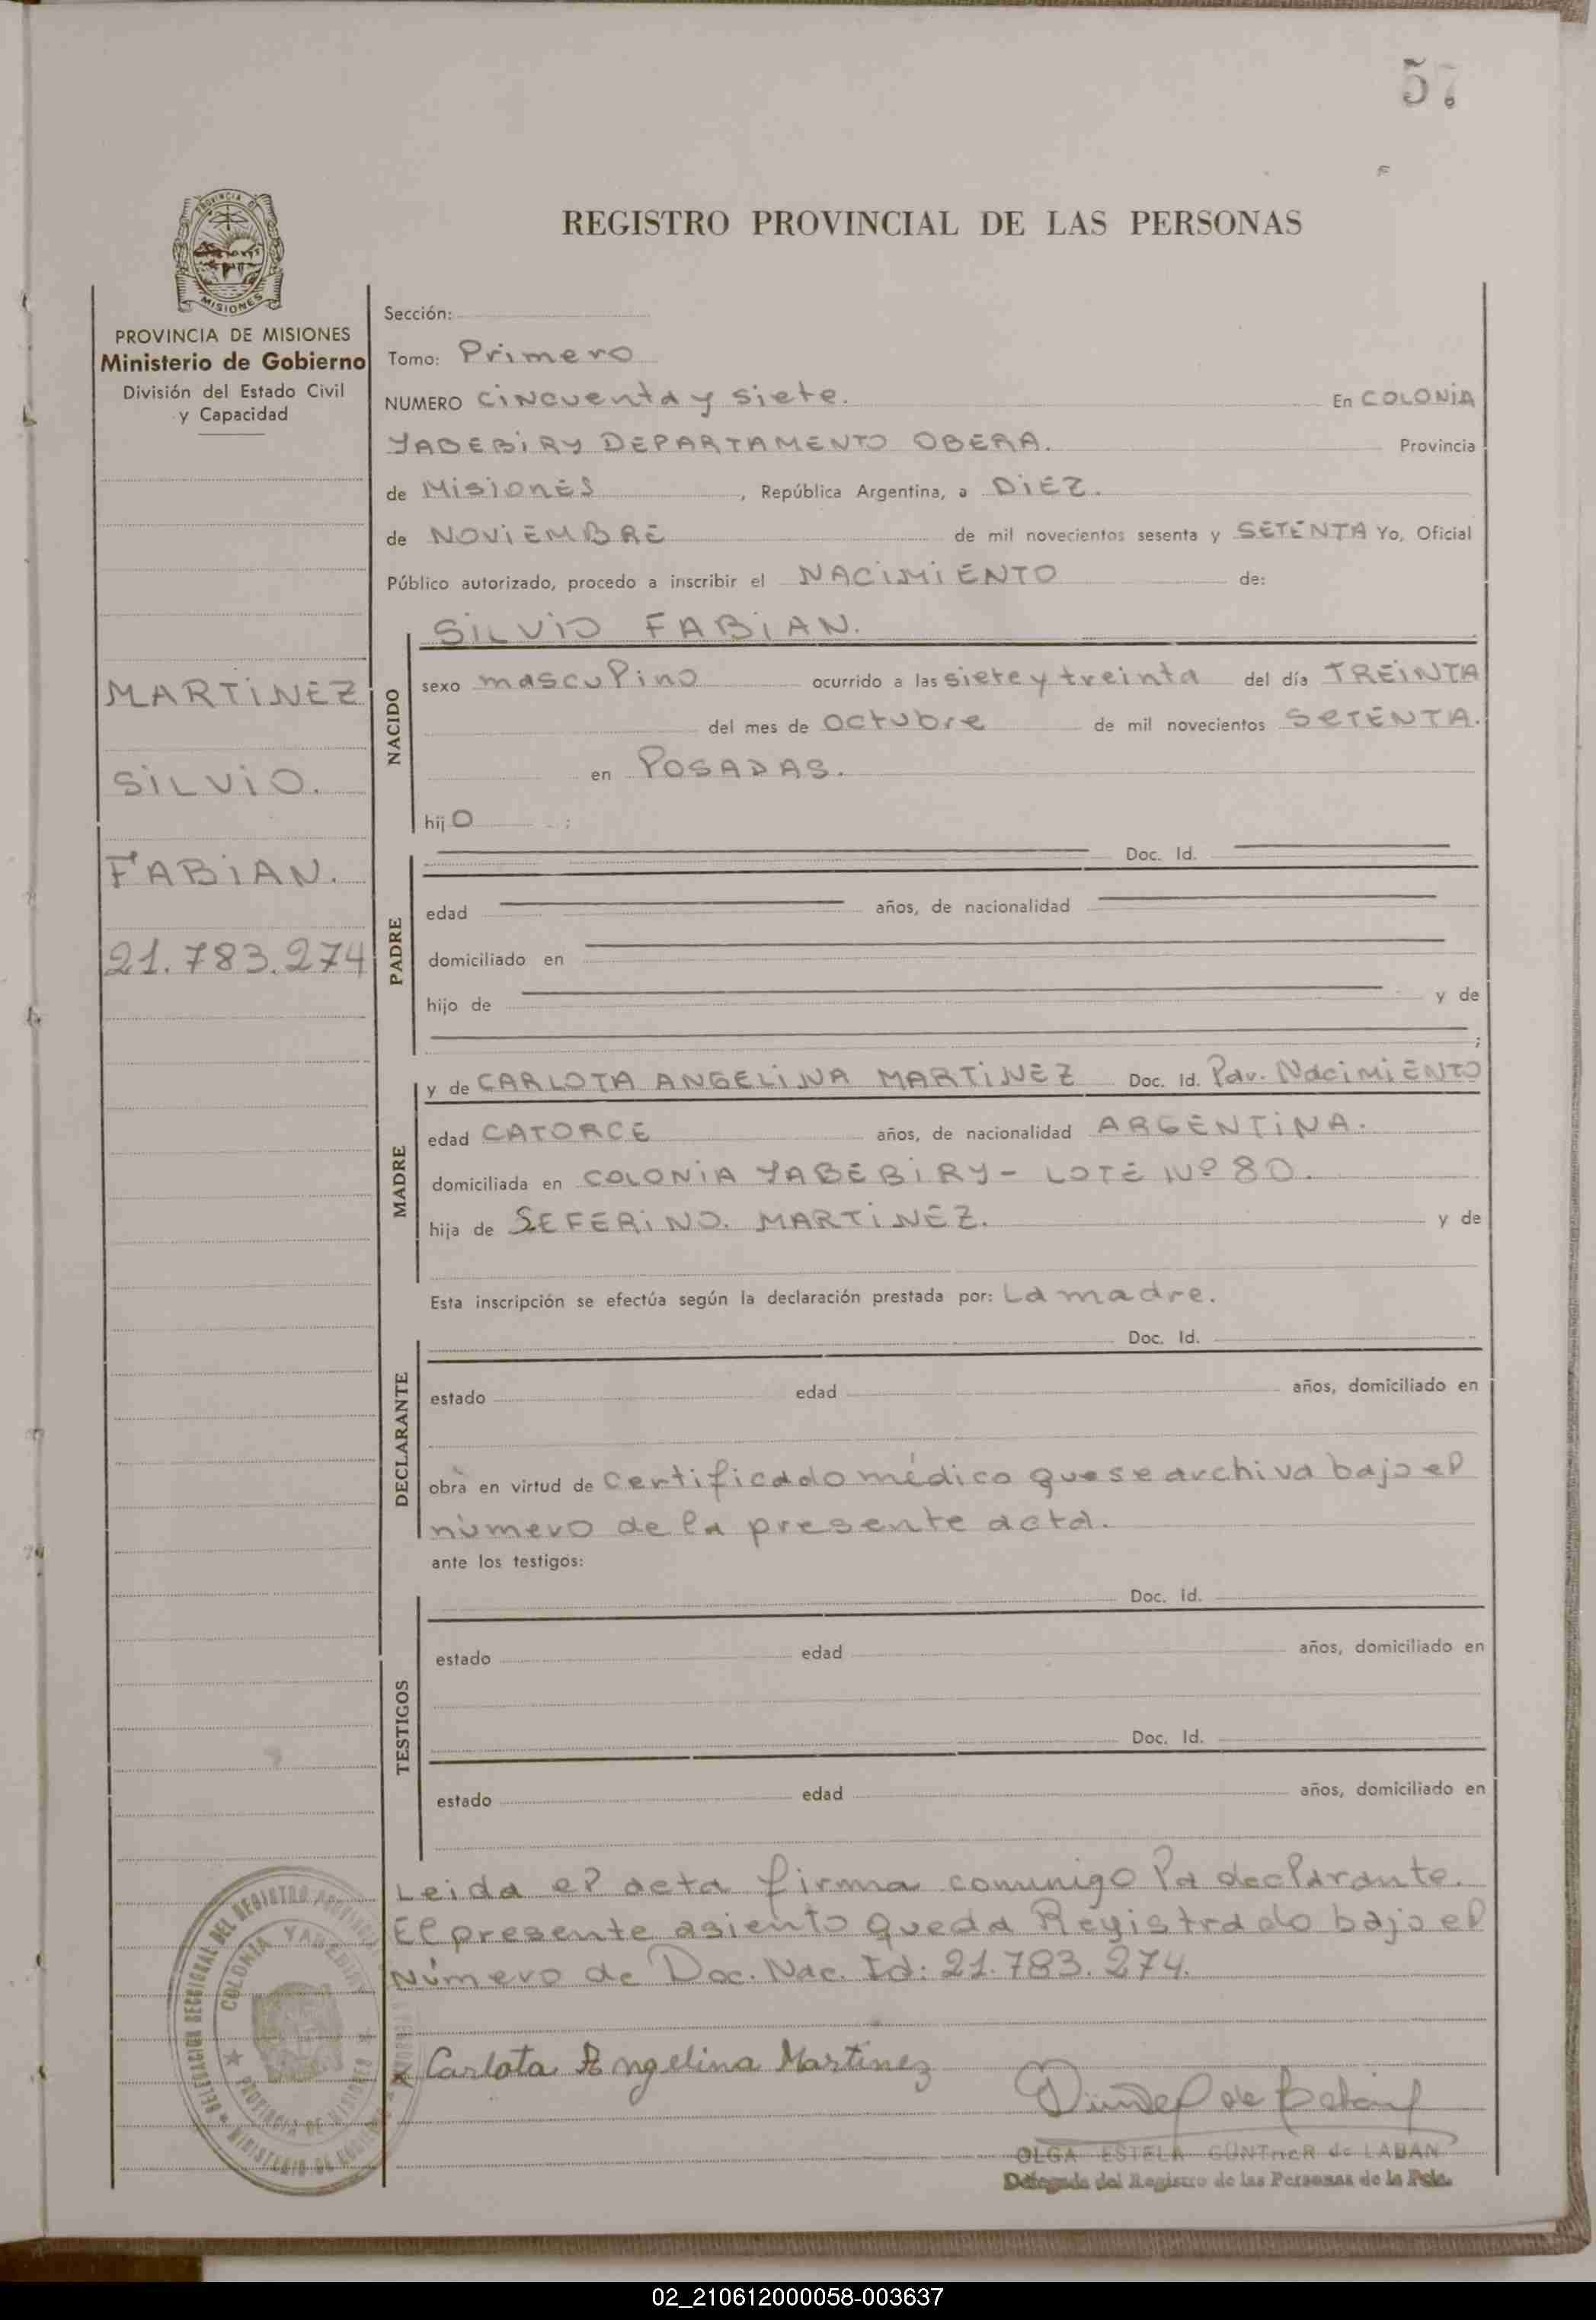 57
REGISTRO PROVINCIAL DE LAS PERSONAS
PROVINCIA DE
MISIONES
PROVINCIA DE MISIONES
Ministerio de Gobierno
División del Estado Civil
y Capacidad
MARTINEZ
SILVIO.
FABIAN.
21.783.274
Sección:
Tomo: Primero
NUMERO cincuenta y siete. En COLONIA
YABEBIRY DEPARTAMENTO OBERA. Provincia
de Misiones, República Argentina, a DIEZ.
de NOVIEMBRE de mil novecientos sesenta y SETENTA Yo, Oficial
Público autorizado, procedo a inscribir el NACIMIENTO de:
SILVIO FABIAN.
NACIDO
sexo masculino ocurrido a las siete y treinta del día TREINTA
del mes de octubre de mil novecientos SETENTA.
en POSADAS.
hijO ;
PADRE
Doc. Id.
edad años, de nacionalidad
domiciliado en
hijo de y de
;
MADRE
y de CARLOTA ANGELINA MARTINEZ Doc. Id. Par. Nacimiento
edad CATORCE años, de nacionalidad ARGENTINA.
domiciliada en COLONIA YABEBIRY - LOTE Nº 80.
hija de SEFERINO. MARTINEZ. y de
Esta inscripción se efectúa según la declaración prestada por: La madre.
DECLARANTE
Doc. Id.
estado edad años, domiciliado en
obra en virtud de certificado médico que se archiva bajo el
número de la presente acta.
ante los testigos:
TESTIGOS
Doc. Id.
estado edad años, domiciliado en
Doc. Id.
estado edad años, domiciliado en
Leida el acta firma conmigo la declarante.
El presente asiento queda Registrado bajo el
Número de Doc. Nac. Id: 21.783.274.
x Carlota Angelina Martinez
OLGA ESTELA GÜNTHER de LABAN
Delegada del Registro de las Personas de la Pcia.
DELEGACION SECCIONAL DEL REGISTRO PROVINCIAL
COLONIA YABEBIRY
PROVINCIA DE MISIONES
MINISTERIO DE GOBIERNO
02_210612000058-003637